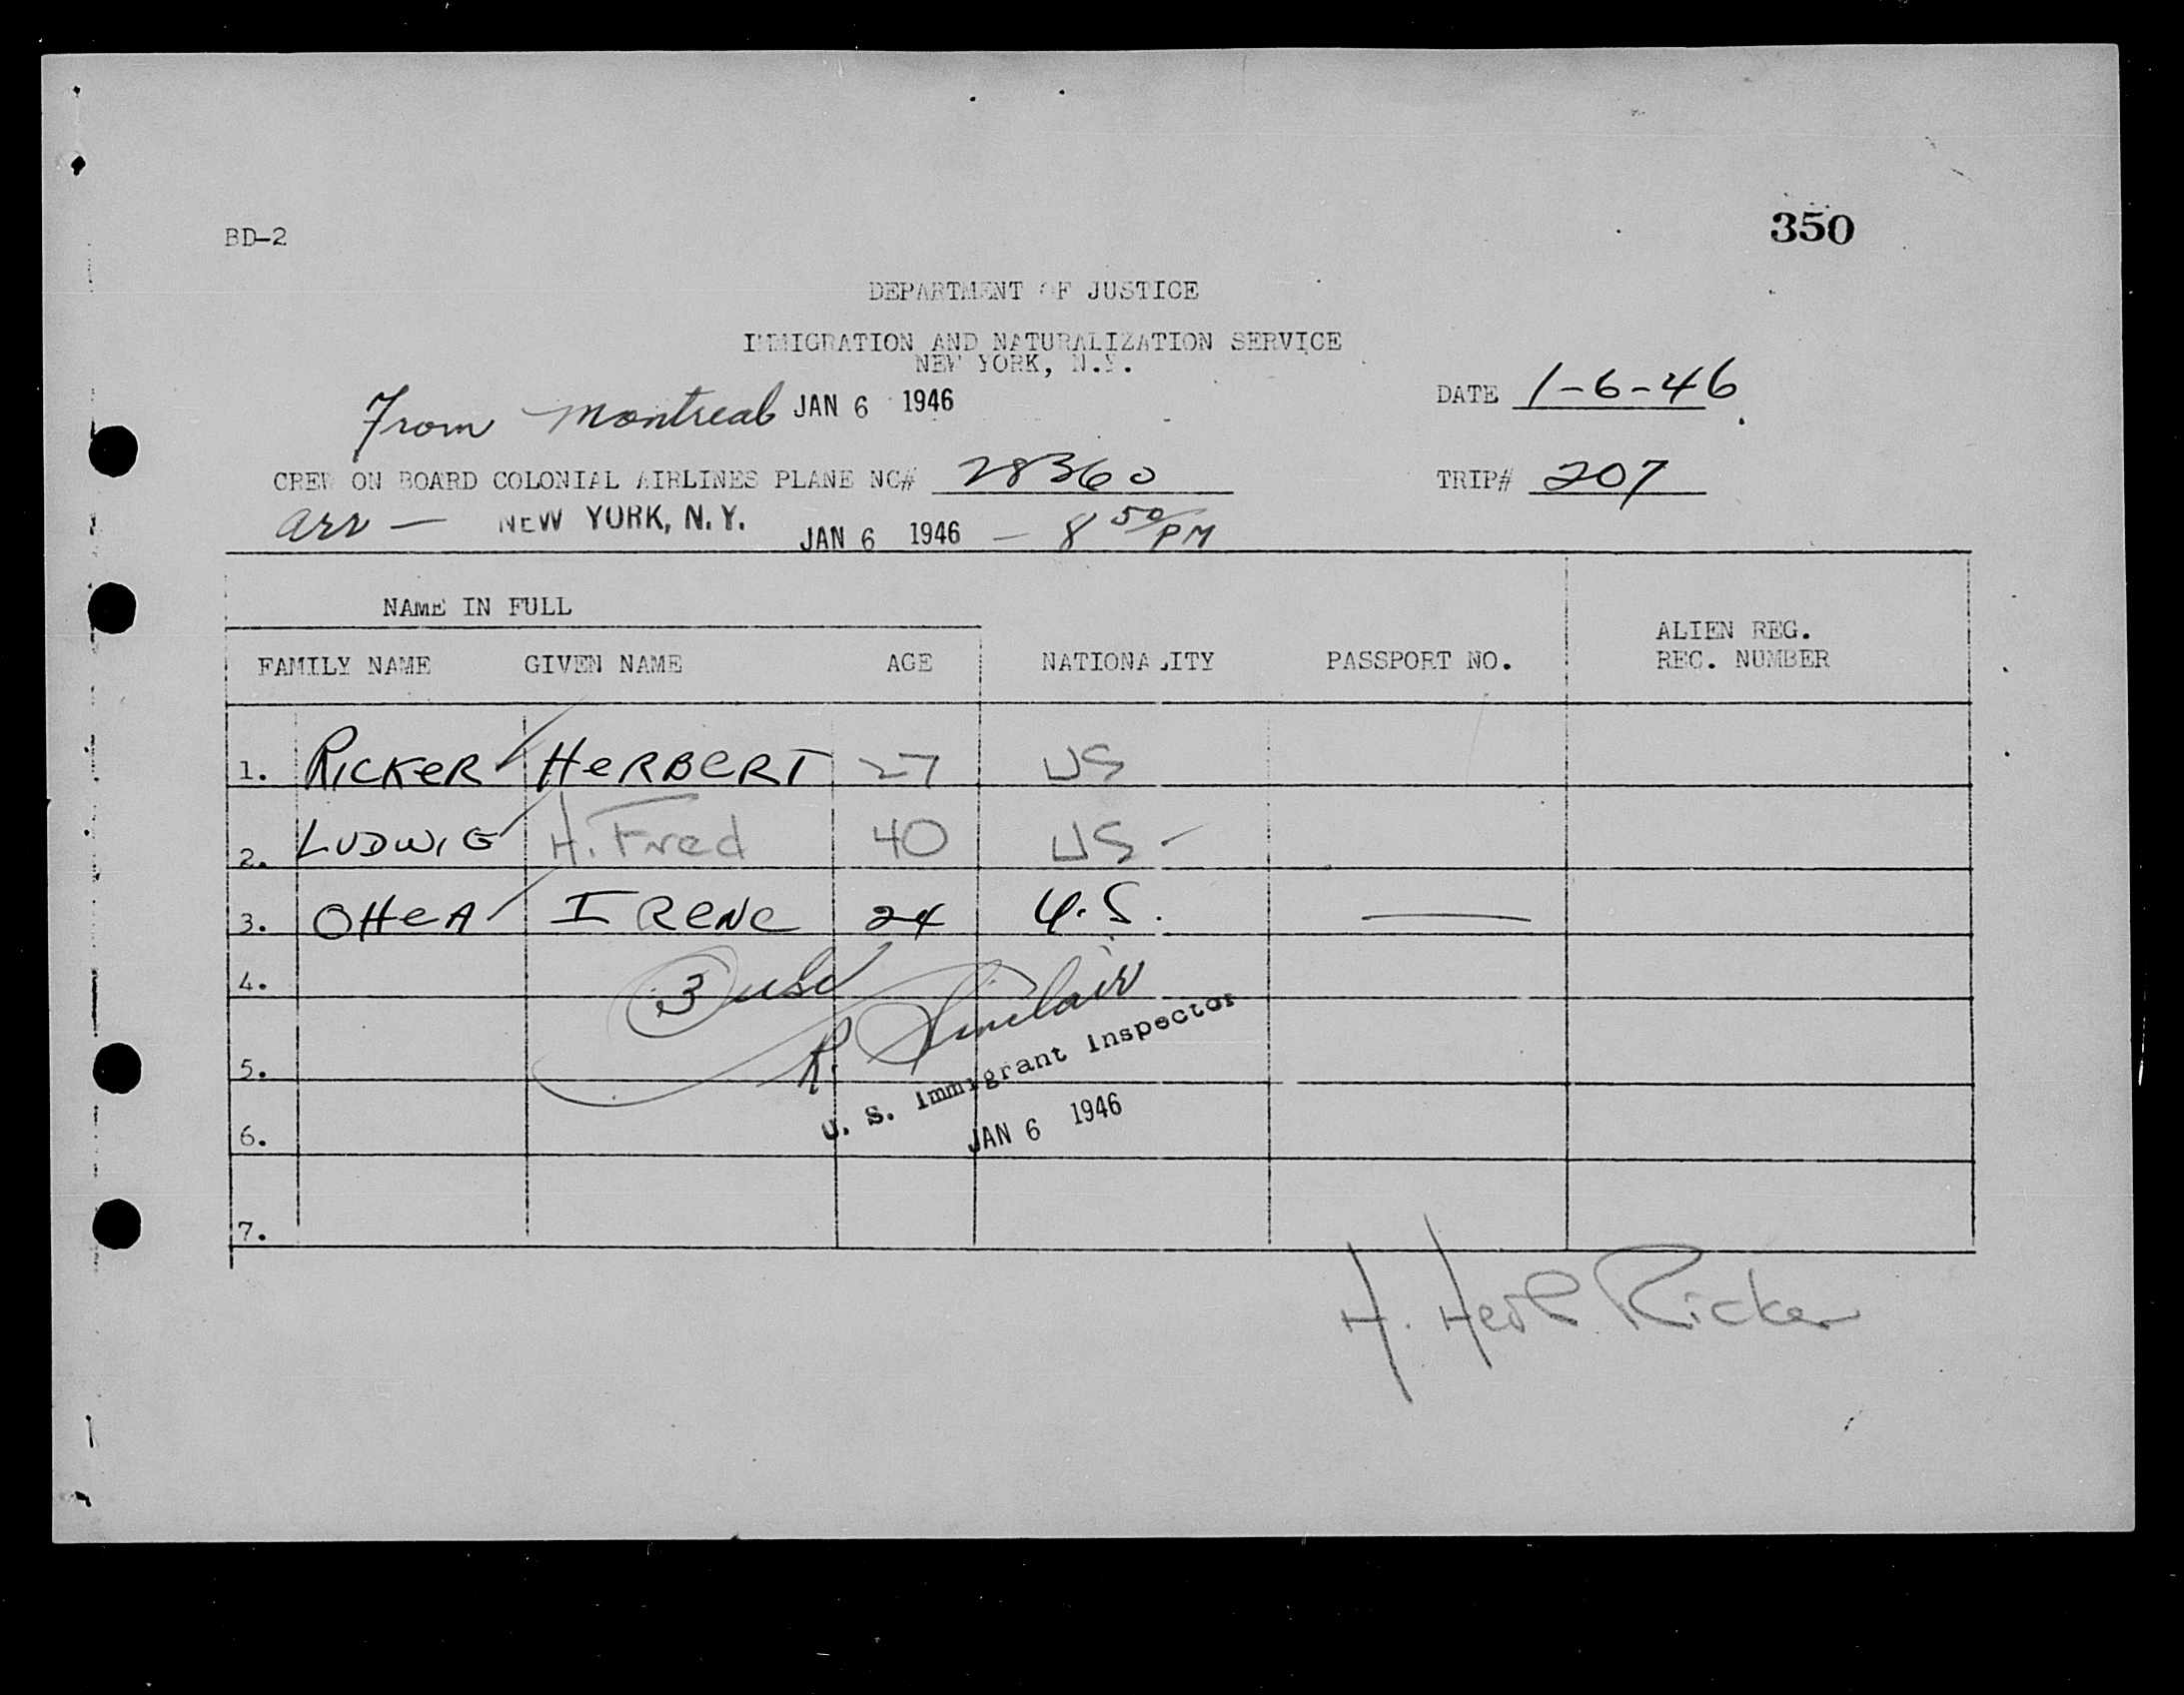 BD-2
350
DEPARTMENT OF JUSTICE
IMMIGRATION AND NATURALIZATION SERVICE
NEW YORK, N.Y.
From Montreal JAN 6 1946
DATE 1-6-46
CREW ON BOARD COLONIAL AIRLINES PLANE NC# 28360
TRIP# 207
arr — NEW YORK, N.Y. JAN 6 1946 — 8 50/PM
NAME IN FULL
FAMILY NAME GIVEN NAME AGE NATIONALITY PASSPORT NO. ALIEN REG. REC. NUMBER
1. RICKER HERBERT 27 US
2. LUDWIG H. Fred 40 US -
3. OHEA IRENE 24 U.S. —
4. 3 usc
R. Sinclair
5.
U. S. Immigrant Inspector
6.
JAN 6 1946
7.
H. Herb Ricker